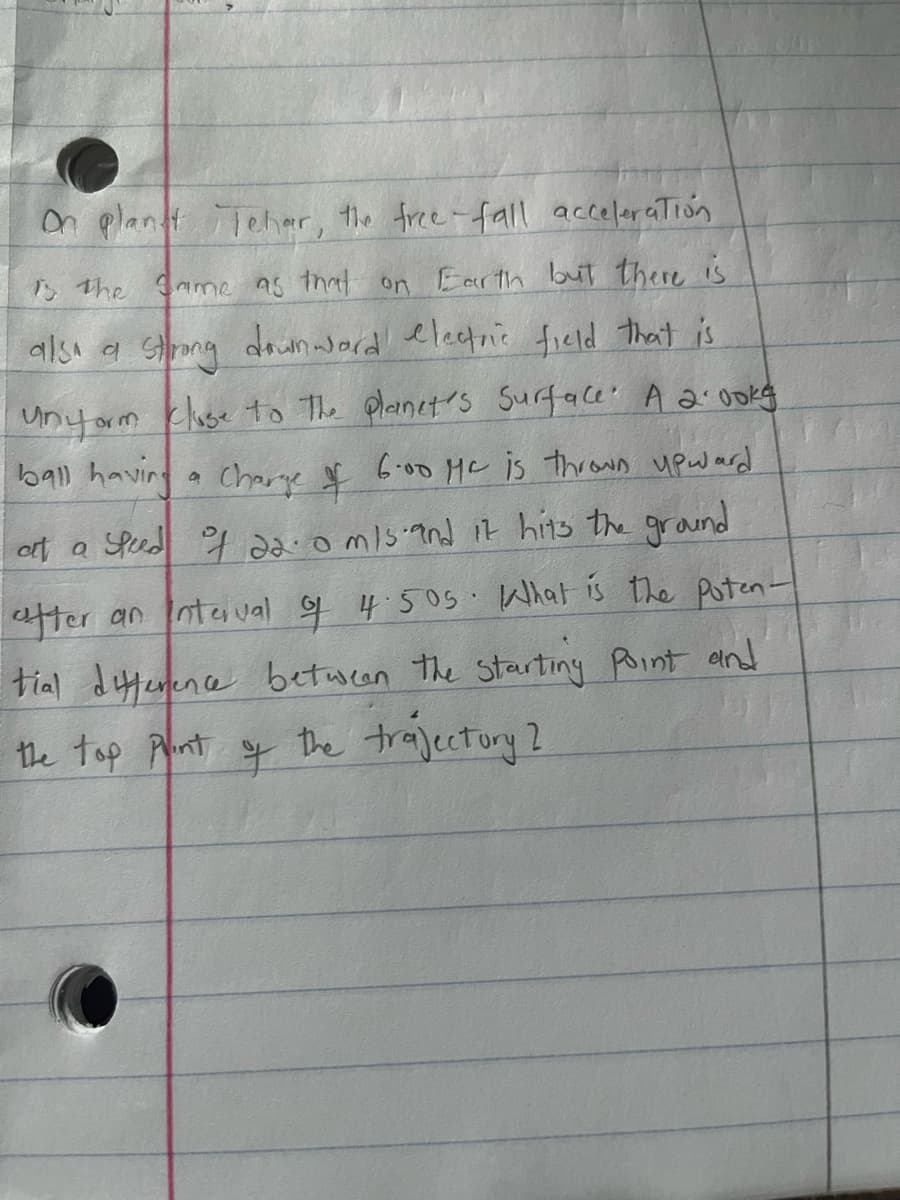 On planet Tehar, the free-fall acceleration
is the same as that on Earth but there is
also a strong downward electric field that is
uniform close to the planet's surface. A 2.00kg
ball having a charge of 6.00 μC is thrown upward
at a speed of 22.0 m/s and it hits the ground
after an interval of 4.50s. What is the poten-
tial difference between the starting point and
the top point of the trajectory?